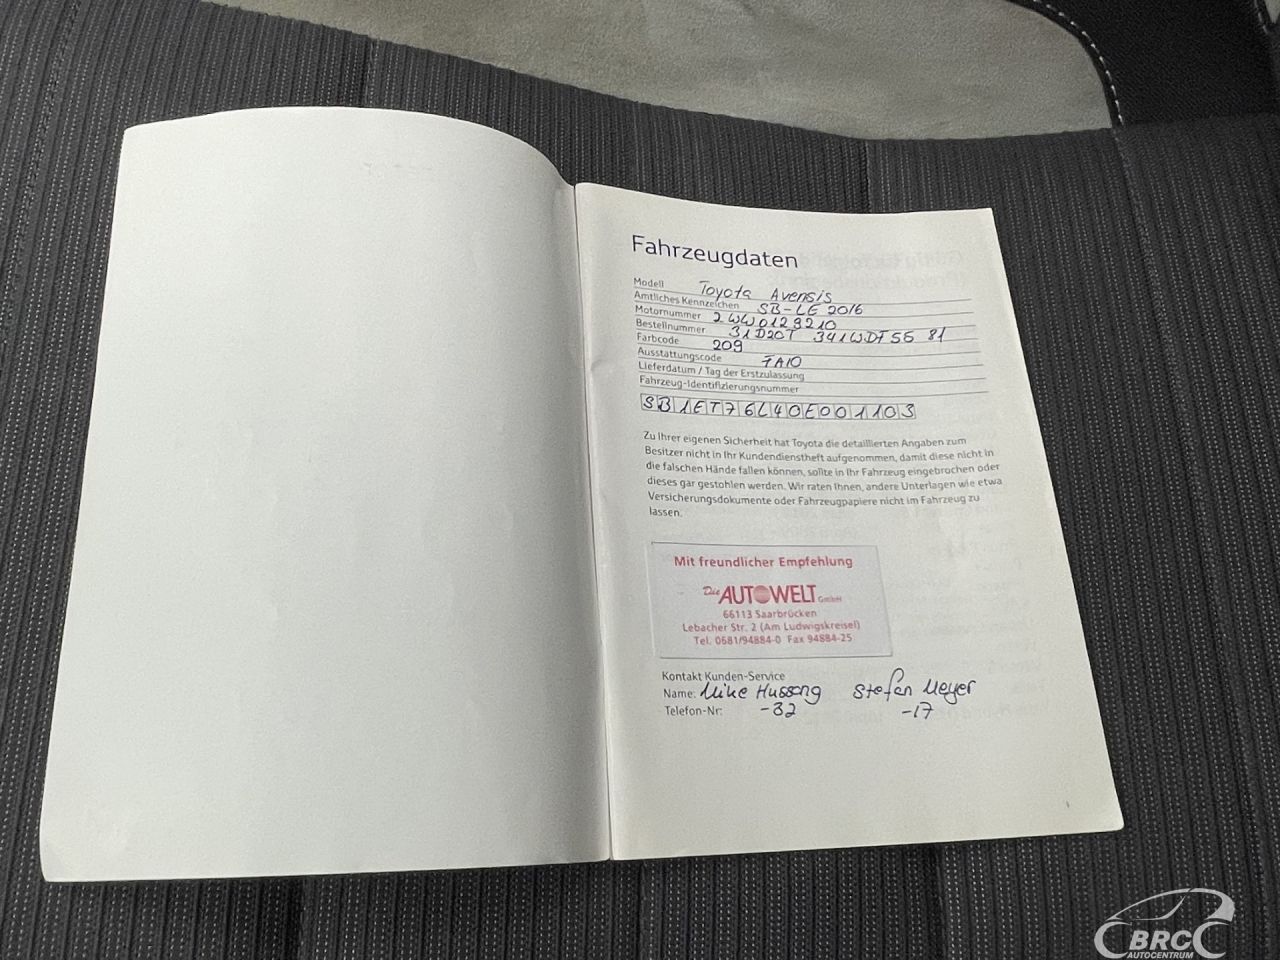 Fahrzeugdaten
Modell Toyota Avensis
Amtliches Kennzeichen SB-LE 2016
Motornummer 2WW0129210
Bestellnummer 31D20T 341WDT55 81
Farbcode 209
Ausstattungscode FA10
Lieferdatum / Tag der Erstzulassung
Fahrzeug-Identifizierungsnummer
SB1ET76L40E001103
Zu Ihrer eigenen Sicherheit hat Toyota die detaillierten Angaben zum
Besitzer nicht in Ihr Kundendienstheft aufgenommen, damit diese nicht in
die falschen Hände fallen können, sollte in Ihr Fahrzeug eingebrochen oder
dieses gar gestohlen werden. Wir raten Ihnen, andere Unterlagen wie etwa
Versicherungsdokumente oder Fahrzeugpapiere nicht im Fahrzeug zu
lassen.
Mit freundlicher Empfehlung
Die AUTOWELT GmbH
66113 Saarbrücken
Lebacher Str. 2 (Am Ludwigskreisel)
Tel. 0681/94884-0 Fax 94884-25
Kontakt Kunden-Service
Name: Mike Hussong Stefan Meyer
Telefon-Nr: -32 -17
1
BRC
AUTOCENTRUM